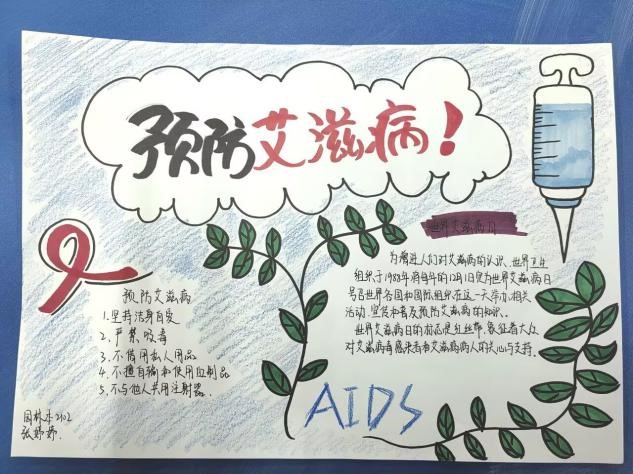 预防艾滋病!
世界艾滋病日
为增进人们对艾滋病的认识、世界卫生
组织于1988年将每年的12月1日定为世界艾滋病日
号召世界各国和国际组织在这一天举办相关
活动,宣传和普及预防艾滋病的知识。
世界艾滋病日的标志是红丝带,象征着大众
对艾滋病毒感染者和艾滋病病人的关心与支持。
预防艾滋病
1.坚持洁身自爱
2.严禁吸毒
3.不借用私人用品
4.不擅自输血和使用血制品
5.不与他人共用注射器.
AIDS
园林本2102
张婷婷.